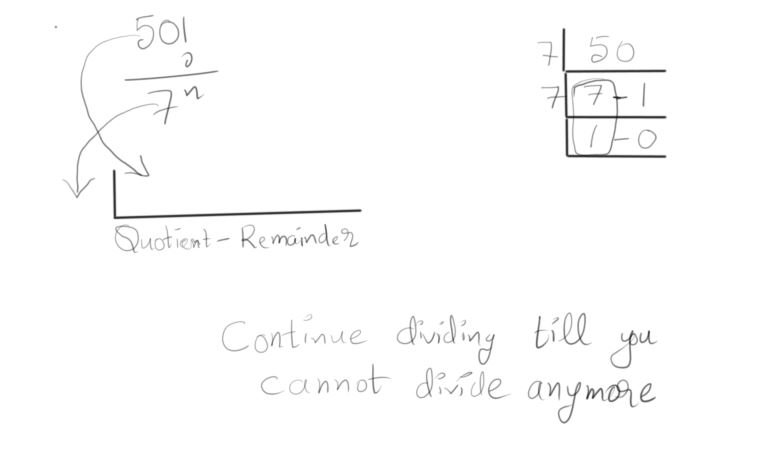 50!
7ⁿ
7 50
7 7-1
1-0
Quotient - Remainder
Continue dividing till you
cannot divide anymore